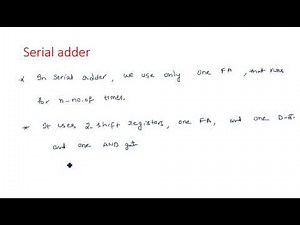 Serial adder
* In serial adder, we use only one FA, that runs
for n-no.of times.
* It uses 2-shift registers, one FA, and one D-ff
and one AND gat